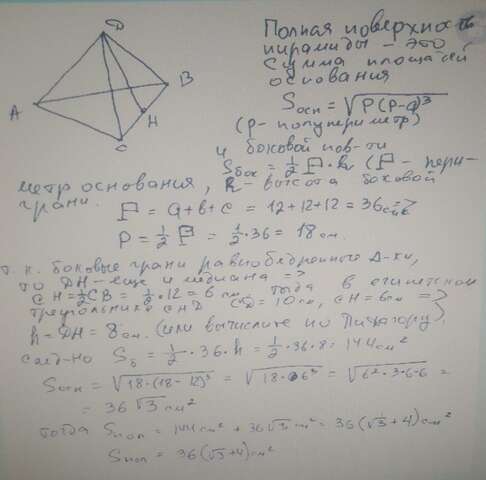 D
A
B
C
H
Полная поверхность
пирамиды - это
сумма площадей
основания
Sосн = √P(P-a)³
(P - полупериметр)
и боковой пов-ти
Sбок = ½ P·h (P - пери-
метр основания, h - высота боковой
грани.
P = a+b+c = 12+12+12 = 36 см =>
P = ½ P = ½·36 = 18 см.
т.к. боковые грани равнобедренные Δ-ки,
то DH - еще и медиана =>
CH = ½CB = ½·12 = 6 см, тогда в египетском
треугольнике CHD CD = 10 см, CH = 6 см =>
h = DH = 8 см. (или вычислите по Пифагору),
след-но Sб = ½·36·h = ½·36·8 = 144 см²
Sосн = √18·(18-12)³ = √18·6³ = √6²·3·6·6 =
= 36√3 см²
тогда Sпол = 144 см² + 36√3 см² = 36(√3+4) см²
Sпол = 36(√3+4) см²